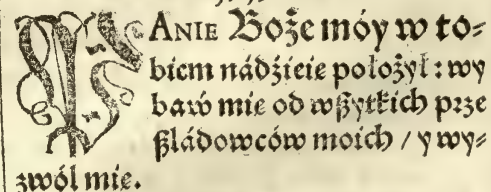 PANIE Boże móy w to⸗
biem nádźieie położył: wy
baw mie od wßytkich prze
ßládowców moich / y wy⸗
zwól mie.